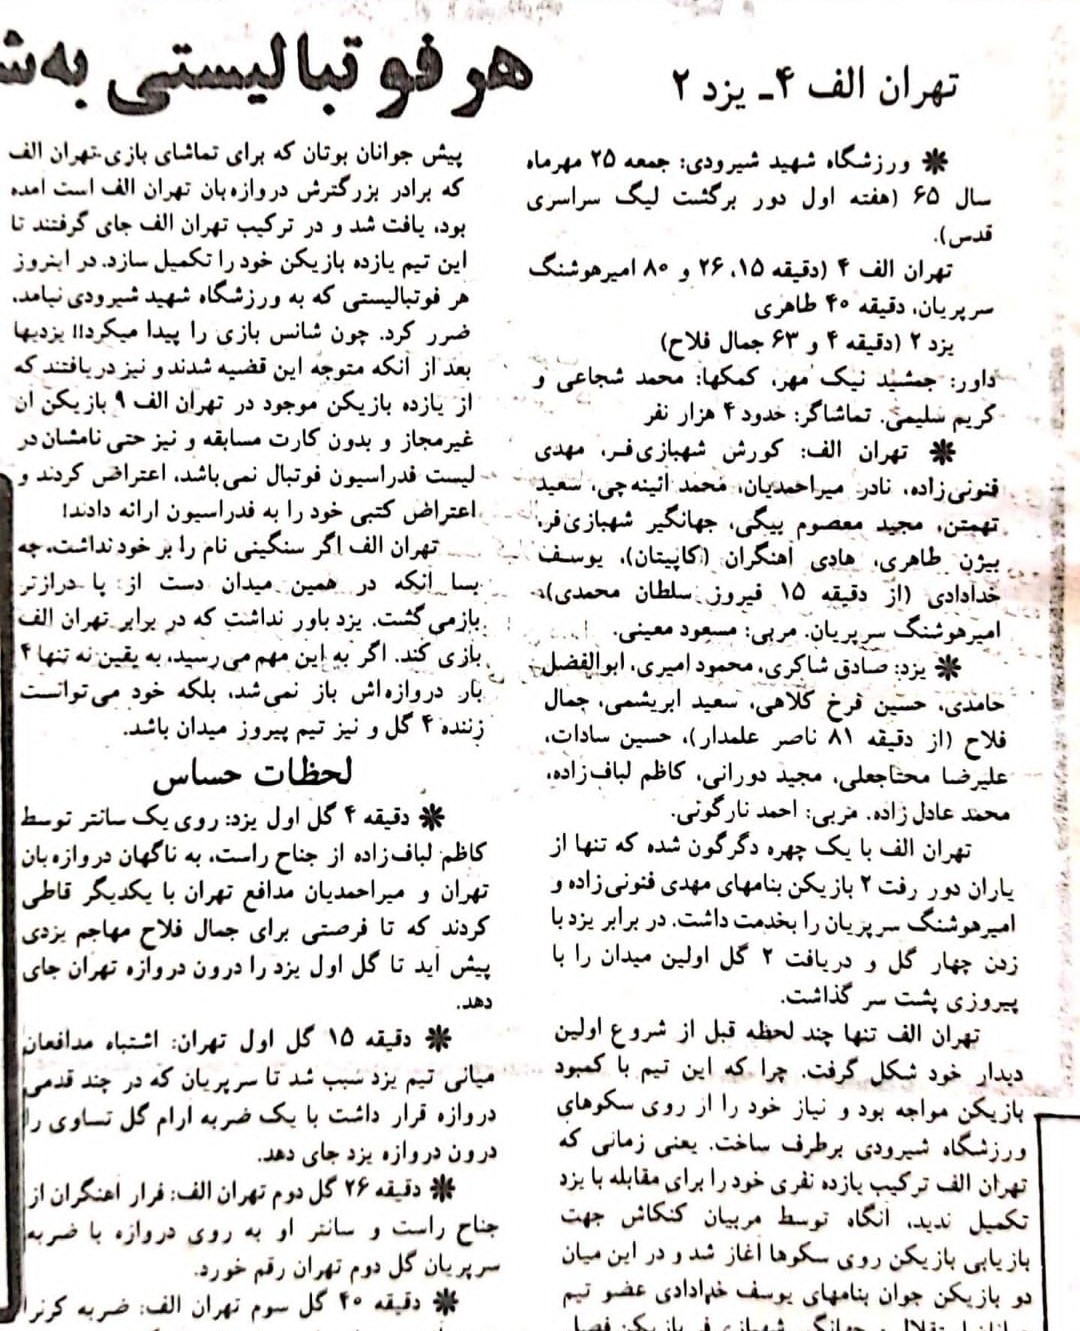 هر فوتبالیستی به
تهران الف ۴ـ یزد ۲
❋ ورزشگاه شهید شیرودی: جمعه ۲۵ مهرماه
سال ۶۵ (هفته اول دور برگشت لیگ سراسری
قدس).
تهران الف ۴ (دقیقه ۱۵، ۲۶ و ۸۰ امیرهوشنگ
سرپریان، دقیقه ۴۰ طاهری
یزد ۲ (دقیقه ۴ و ۶۳ جمال فلاح)
داور: جمشید نیک مهر، کمکها: محمد شجاعی و
کریم سلیمی. تماشاگر: حدود ۴ هزار نفر
❋ تهران الف: کورش شهبازی‌فر، مهدی
فنونی‌زاده، نادر میراحمدیان، محمد ائینه‌چی، سعید
تهمتن، مجید معصوم بیگی، جهانگیر شهبازی‌فر،
بیژن طاهری، هادی اهنگران (کاپیتان)، یوسف
خدادادی (از دقیقه ۱۵ فیروز سلطان محمدی)،
امیرهوشنگ سرپریان. مربی: مسعود معینی.
❋ یزد: صادق شاکری، محمود امیری، ابوالفضل
حامدی، حسین فرخ کلاهی، سعید ابریشمی، جمال
فلاح (از دقیقه ۸۱ ناصر علمدار)، حسین سادات،
علیرضا محتاجعلی، مجید دورانی، کاظم لباف‌زاده،
محمد عادل زاده. مربی: احمد نارگونی.
تهران الف با یک چهره دگرگون شده که تنها از
یاران دور رفت ۲ بازیکن بنامهای مهدی فنونی‌زاده و
امیرهوشنگ سرپریان را بخدمت داشت. در برابر یزد با
زدن چهار گل و دریافت ۲ گل اولین میدان را با
پیروزی پشت سر گذاشت.
تهران الف تنها چند لحظه قبل از شروع اولین
دیدار خود شکل گرفت. چرا که این تیم با کمبود
بازیکن مواجه بود و نیاز خود را از روی سکوهای
ورزشگاه شیرودی برطرف ساخت. یعنی زمانی که
تهران الف ترکیب یازده نفری خود را برای مقابله با یزد
تکمیل ندید، انگاه توسط مربیان کنکاش جهت
بازیابی بازیکن روی سکوها اغاز شد و در این میان
دو بازیکن جوان بنامهای یوسف خدادادی عضو تیم
جوانان استقلال و جهانگیر شهبازی فر بازیکن فصل
پیش جوانان بوتان که برای تماشای بازی تهران الف
که برادر بزرگترش دروازه‌بان تهران الف است امده
بود، یافت شد و در ترکیب تهران الف جای گرفتند تا
این تیم یازده بازیکن خود را تکمیل سازد. در اینروز
هر فوتبالیستی که به ورزشگاه شهید شیرودی نیامد،
ضرر کرد. چون شانس بازی را پیدا میکرد!! یزدیها
بعد از انکه متوجه این قضیه شدند و نیز دریافتند که
از یازده بازیکن موجود در تهران الف ۹ بازیکن ان
غیرمجاز و بدون کارت مسابقه و نیز حتی نامشان در
لیست فدراسیون فوتبال نمی‌باشد، اعتراض کردند و
اعتراض کتبی خود را به فدراسیون ارائه دادند!
تهران الف اگر سنگینی نام را بر خود نداشت، چه
بسا انکه در همین میدان دست از پا درازتر
بازمی‌گشت. یزد باور نداشت که در برابر تهران الف
بازی کند. اگر به این مهم می‌رسید، به یقین نه تنها ۴
بار دروازه‌اش باز نمی‌شد، بلکه خود می‌توانست
زننده ۴ گل و نیز تیم پیروز میدان باشد.
لحظات حساس
❋ دقیقه ۴ گل اول یزد: روی یک سانتر توسط
کاظم لباف‌زاده از جناح راست، به ناگهان دروازه‌بان
تهران و میراحمدیان مدافع تهران با یکدیگر قاطی
کردند که تا فرصتی برای جمال فلاح مهاجم یزدی
پیش اید تا گل اول یزد را درون دروازه تهران جای
دهد.
❋ دقیقه ۱۵ گل اول تهران: اشتباه مدافعان
میانی تیم یزد سبب شد تا سرپریان که در چند قدمی
دروازه قرار داشت با یک ضربه ارام گل تساوی را
درون دروازه یزد جای دهد.
❋ دقیقه ۲۶ گل دوم تهران الف: فرار اهنگران از
جناح راست و سانتر او به روی دروازه با ضربه
سرپریان گل دوم تهران رقم خورد.
❋ دقیقه ۴۰ گل سوم تهران الف: ضربه کرنر